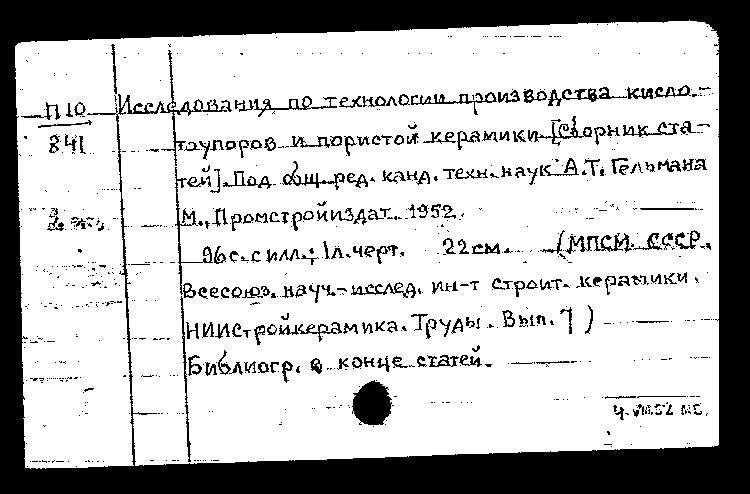 П10 Исследования по технологии производства кисло-
841 тоупоров и пористой керамики. [Сборник ста-
тей]. Под общ. ред. канд. техн. наук А.Т. Гельмана
М., Промстройиздат. 1952.
96с. с илл.; 1л. черт. 22см. (МПСМ СССР.
Всесоюз. науч.-исслед. ин-т строит. керамики.
НИИстройкерамика. Труды. Вып. 7)
Библиогр. в конце статей.